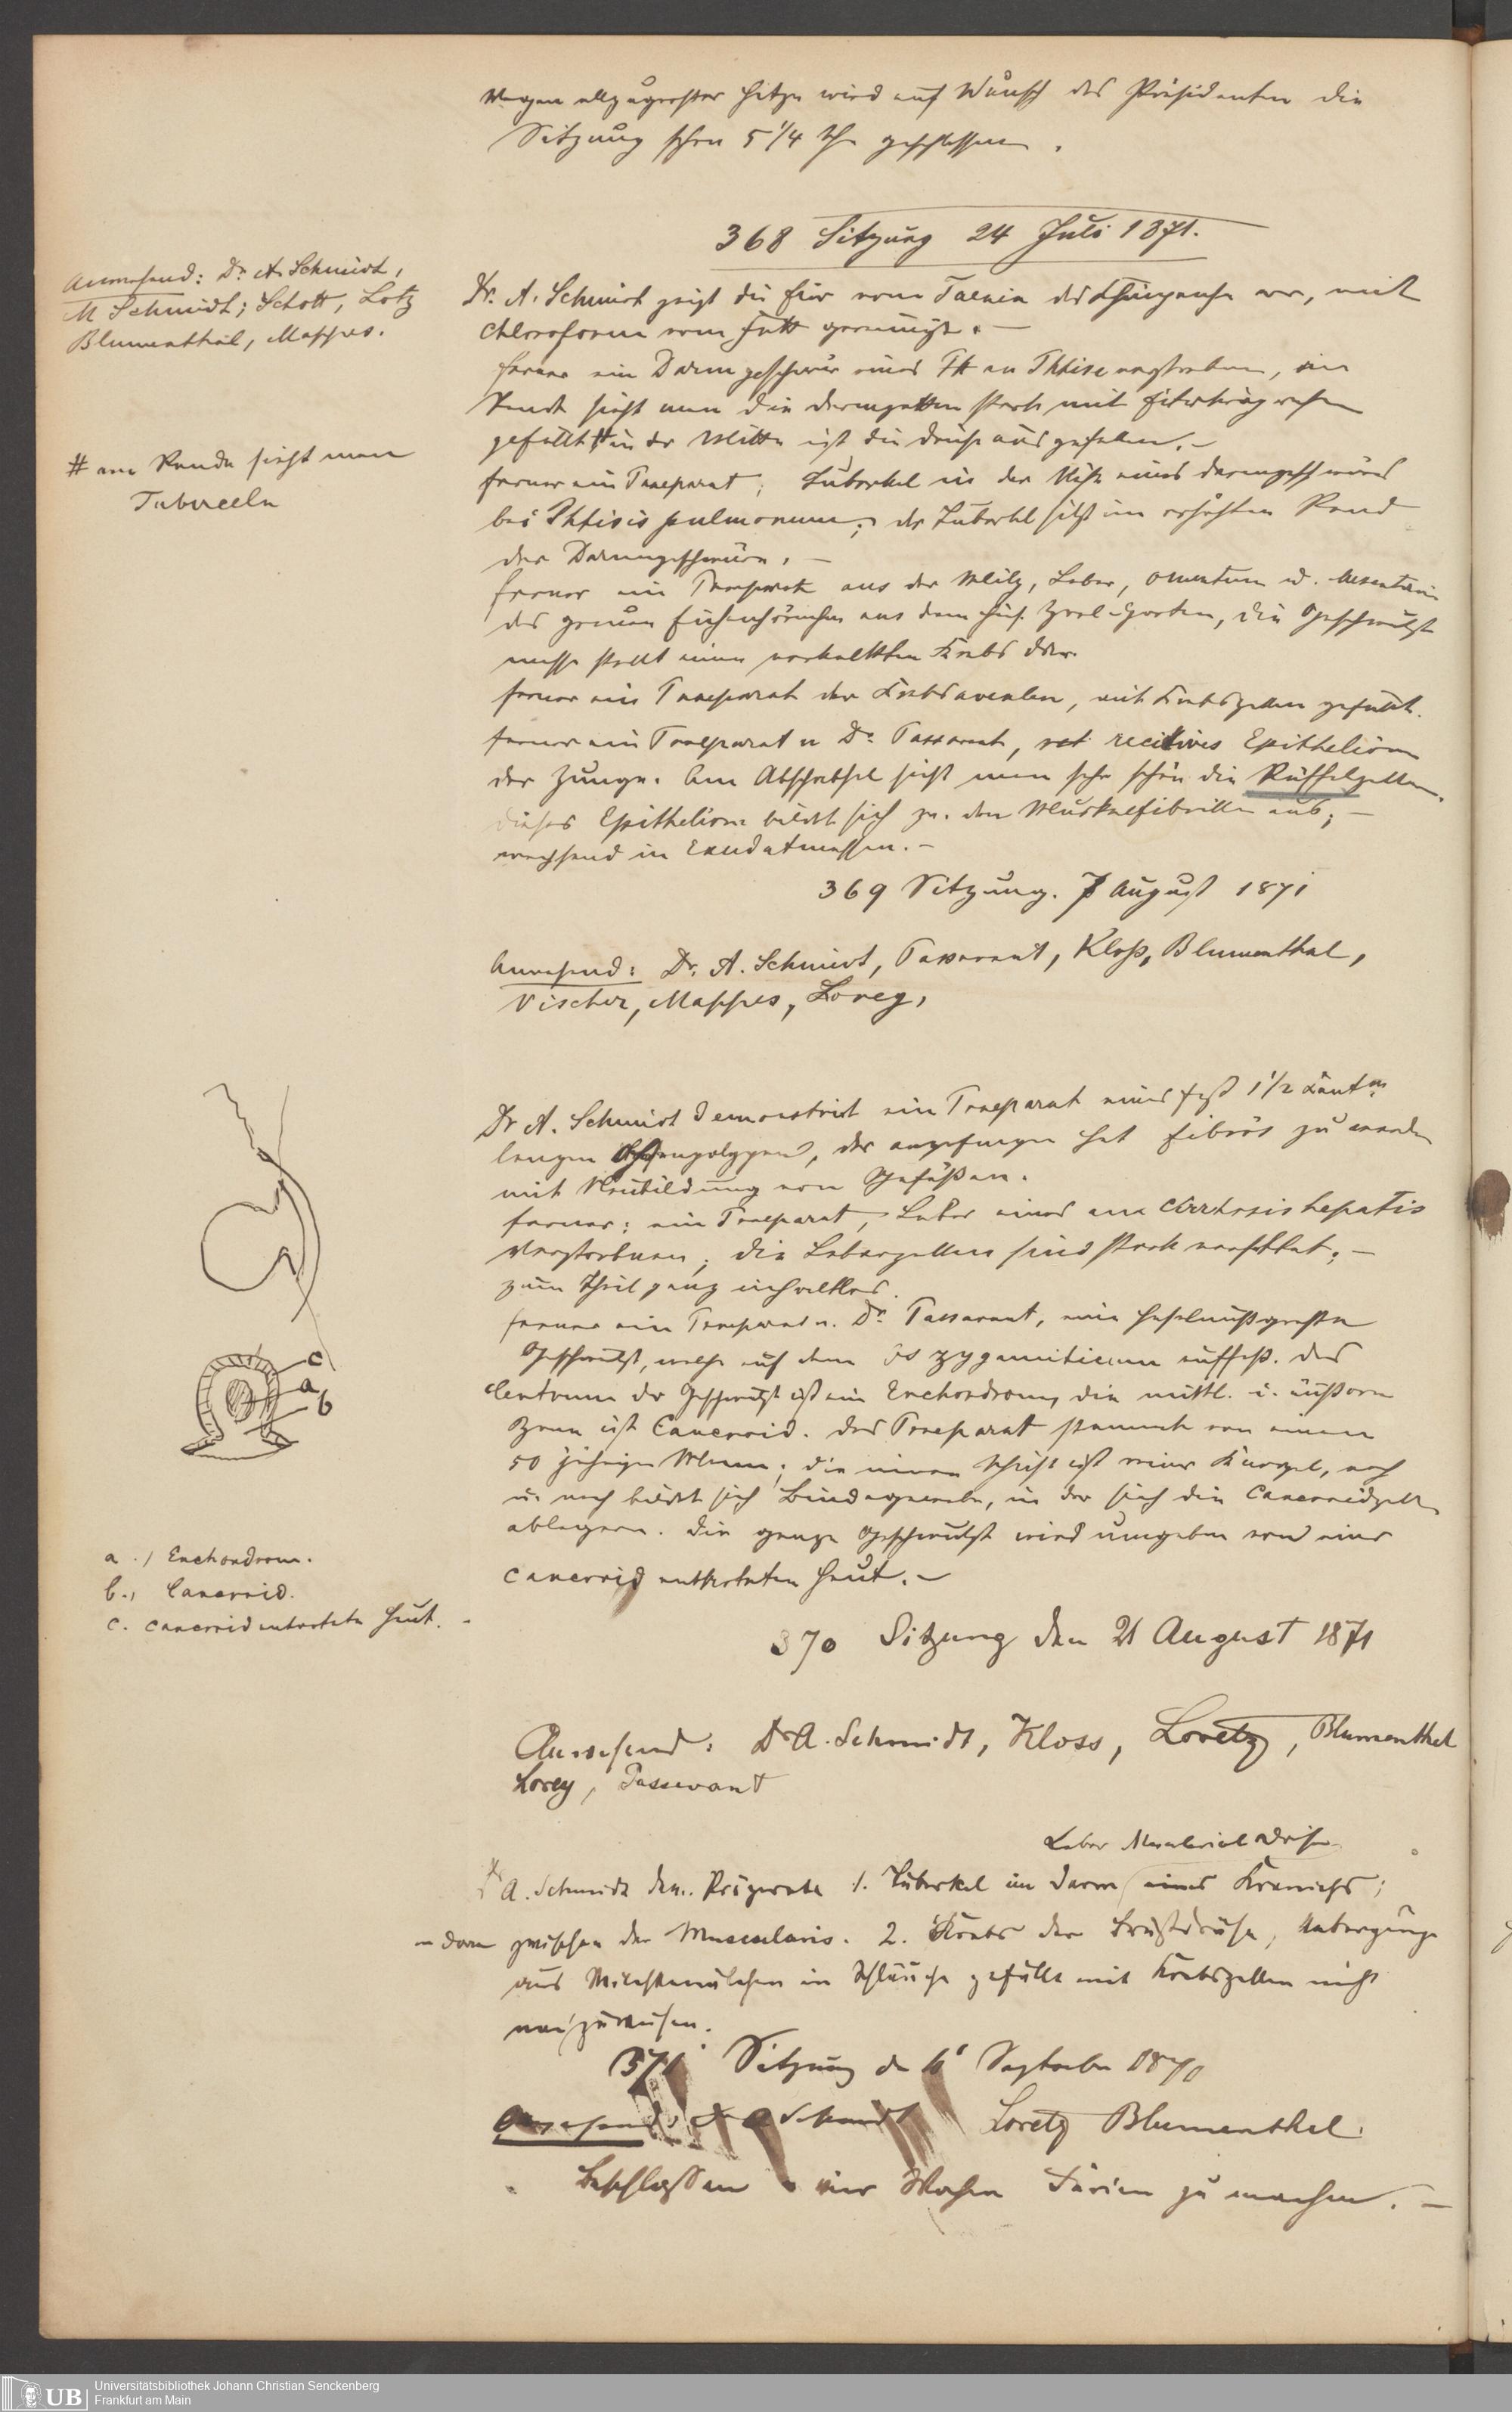 Wegen allzugrosser Hitze wird auf Wunsch des Präsidenten die
Sitzung schon 5 1/4 Uhr geschlossen.
368 Sitzung 24 Juli 1871.
Anwesend: Dr. A. Schmidt,
M Schmidt; Schott, Lotz
Blumenthal, Mappes.
Dr. A. Schmidt zeigt die Eier von Taenia des vor, mit
Chloroform vom Fett gereinigt. —
ferner ein Darmgeschwür eines an Phtise verstorbenen, am
Rande sieht man die stark mit
gefüllt # in der Mitte ist die Drüse ausgefallen. —
# am Rande sieht man
Tuberceln
ferner ein Praeparat; Tuberkel in der Nähe eines Darmgeschwürs
bei Phtisis pulmonum; der Tuberkel sitzt im erhöhten Rand
der Darmgeschwüre. —
ferner ein Praeparat aus der Milz, Leber, Omentum u. Mesenterium
des grauen Eichhörnchen aus dem hies. Zool. Garten, die Geschwulst
masse stellt einen verkalkten Krebs dar.
ferner ein Praeparat der Krebsalveolen, mit Krebszellen gefüllt.
ferner ein Praeparat v. Dr. Passavant, recidives Epitheliom
der Zunge. Am Abschabsel sieht man sehr schön die Rüffelzellen.
dieses Epitheliom bildet sich zw. den Muskelfibrillen aus; —
wachsend in Exudatmassen. —
369 Sitzung. 7 August 1871
Anwesend: Dr. A. Schmidt, Passavant, Kloß, Blumenthal,
Vischer, Mappes, Lorey,
Dr A. Schmidt demonstrirt ein Praeparat eines fast 1 1/2 Centm
langen polypen, der angefangen hat fibrös zu werden
mit Neubildung von Gefäßen.
ferner: ein Praeparat, Leber eines an Cirrhosis hepatis
Verstorbenen; die Leberzellen sind stark verfettet; —
zum Theil ganz inhaltlos.
ferner ein Praeparat v. Dr. Passavant, eine haselnußgroße
Geschwulst, welche auf dem Os zygomaticum aufsaß. Das
Centrum der Geschwulst ist ein Enchondrom, die mittl. u. äußere
Zone ist Cancroid. Das Praeparat stammt von einem
50 jährigen Mann; die innere Schicht ist reiner Knorpel, nach
u. nach bildet sich Bindegewebe, in der sich die Cancroidzellen
ablagern. Die ganze Geschwulst wird umgeben von einer
cancroid entarteten Haut. —
c
a
b
a.) Enchondrom.
b.) Cancroid.
c. cancroid entartete Haut.
370 Sitzung den 21 August 1871
Anwesend: Dr A. Schmidt, Kloss, Loretz, Blumenthal
Lorey, Passavant
Leber Mesenterialdrüsen
Dr A. Schmidt dem. Präparate 1. Tuberkel im Darm eines Kranichs;
zwischen der Muscularis. 2. Krebs der Brustdrüse, Uebergänge
aus Milchkanälchen in Schläuche gefüllt mit Krebszellen nicht
nachzuweisen.
371 Sitzung d September 1871
Anwesend: Dr A Schmidt Loretz Blumenthal.
Beschlossen vier Wochen Ferien zu machen. —
UB Universitätsbibliothek Johann Christian Senckenberg
Frankfurt am Main